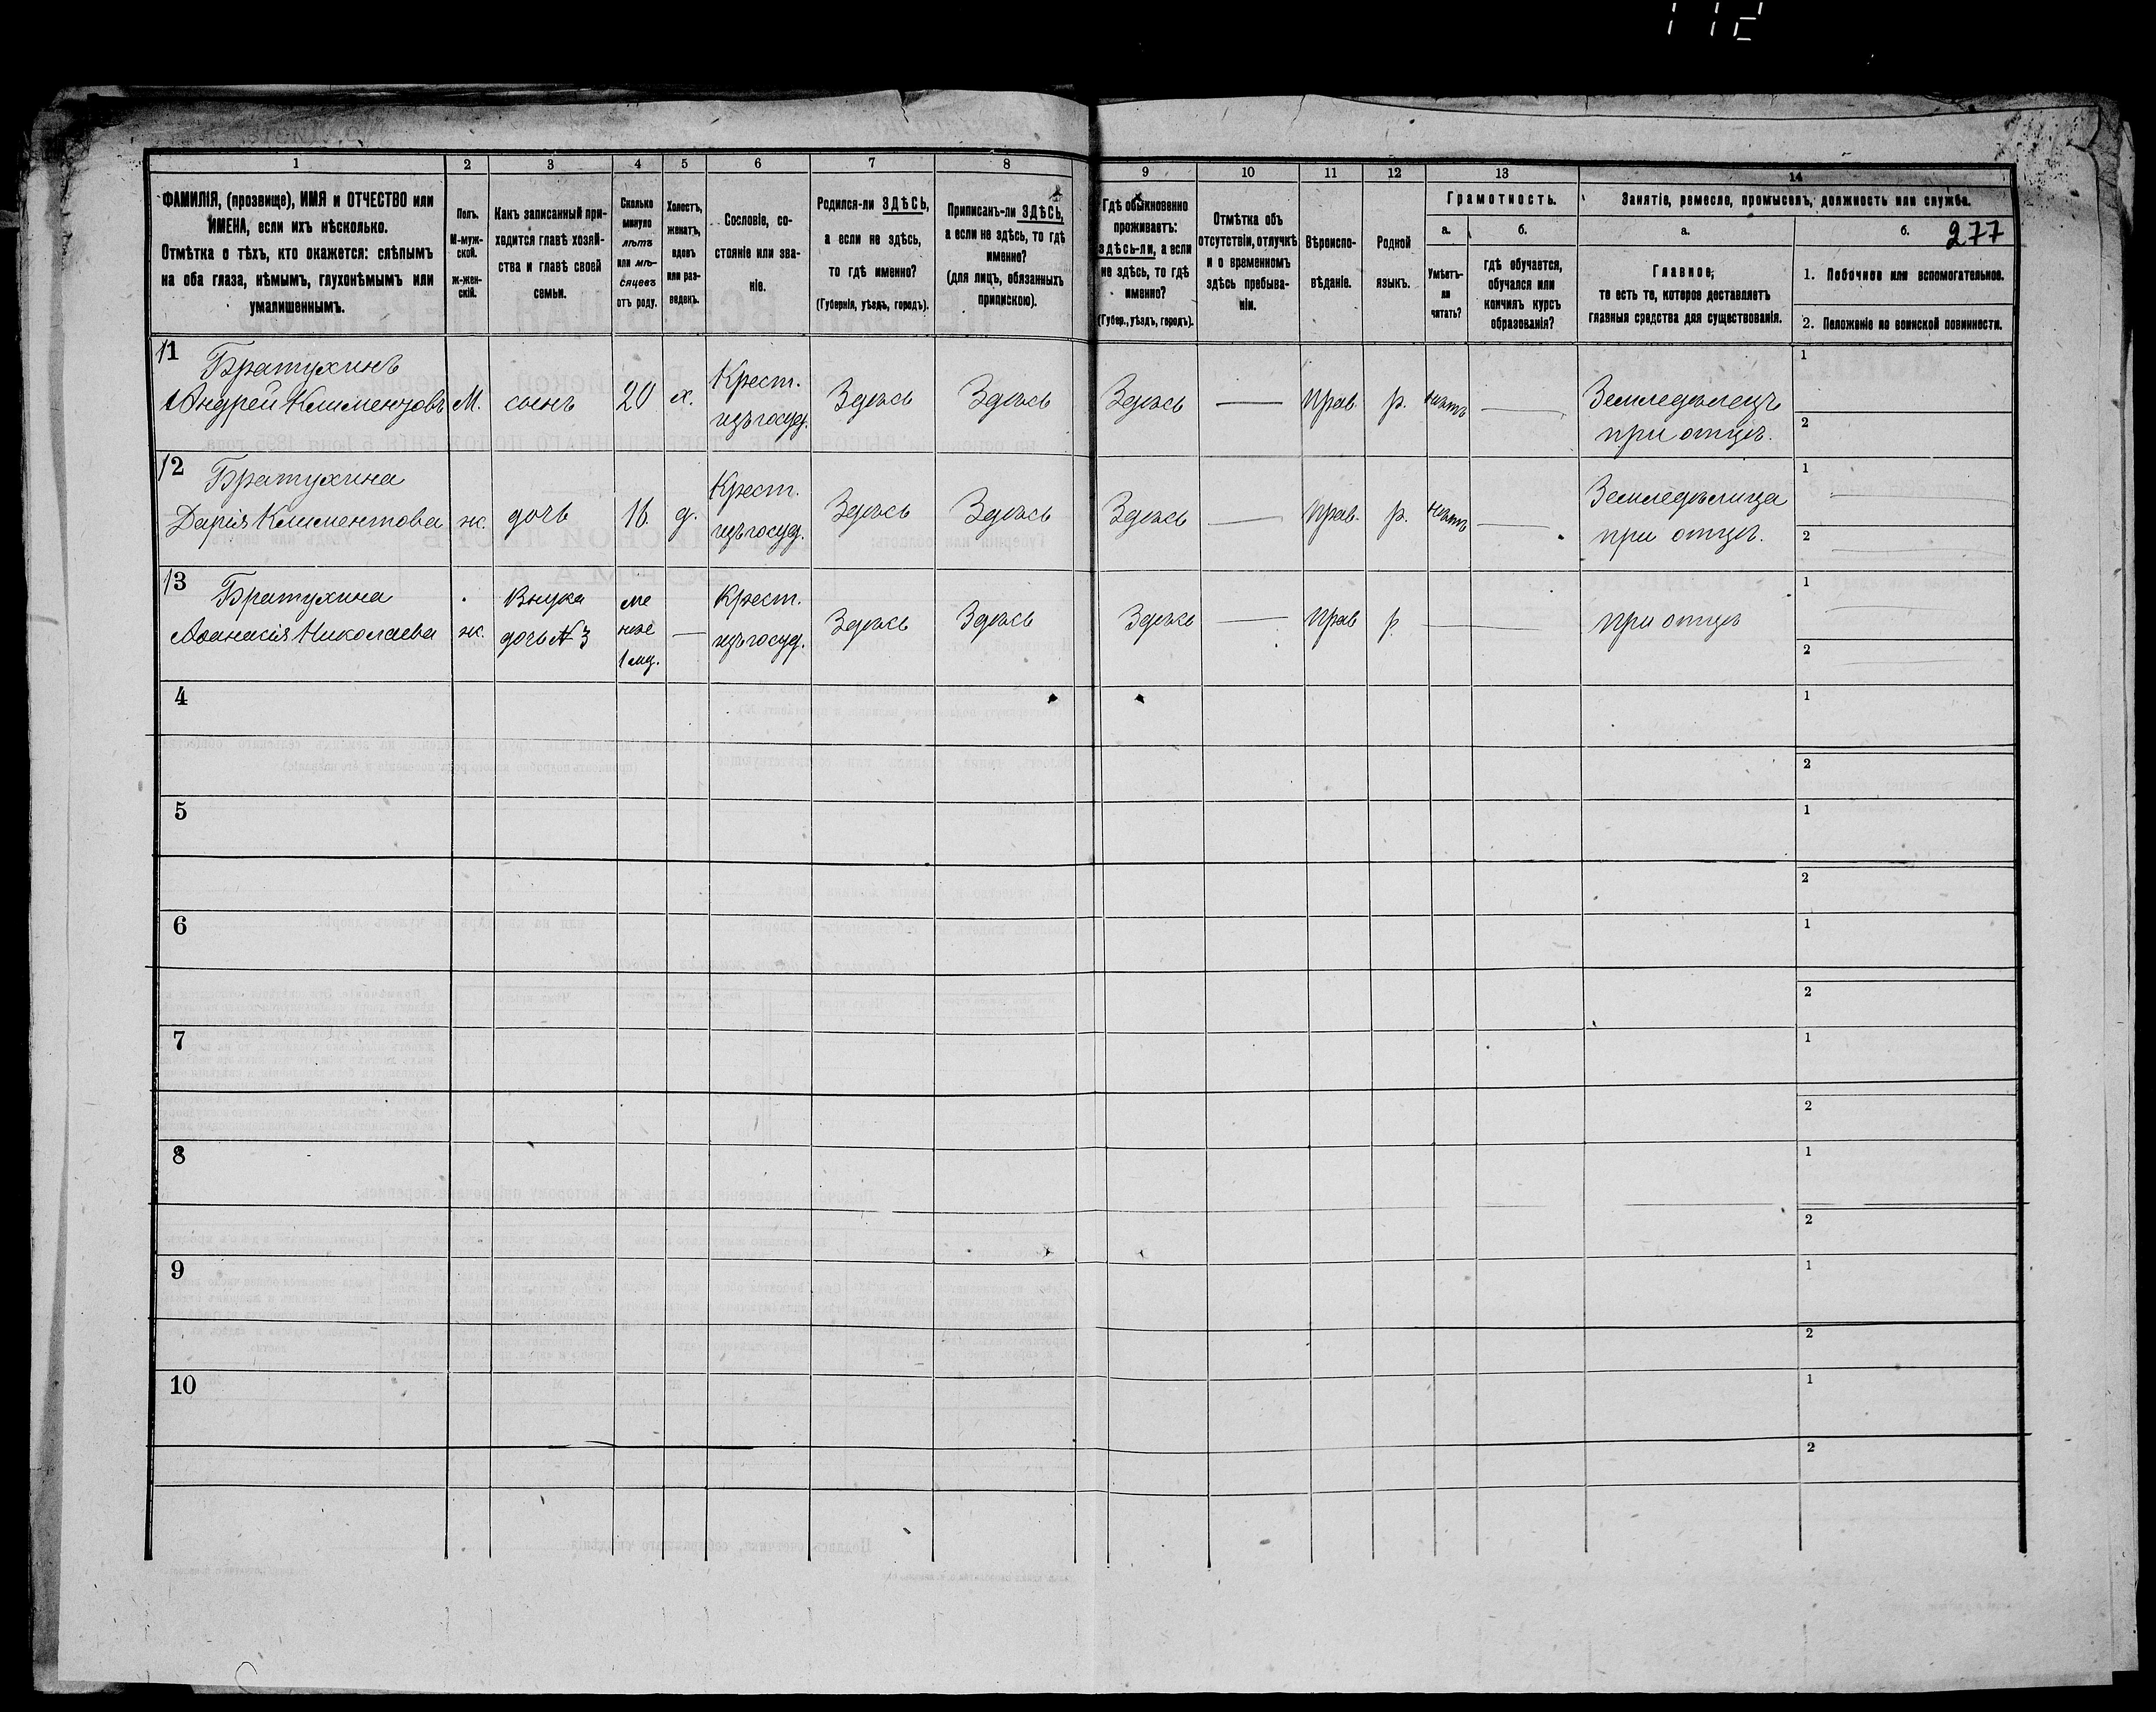 112
277
1 2 3 4 5 6 7 8 9 10 11 12 13 14
ФАМИЛІЯ, (прозвище), ИМЯ и ОТЧЕСТВО или
ИМЕНА, если ихъ нѣсколько.
Отмѣтка о тѣхъ, кто окажется: слѣпымъ
на оба глаза, нѣмымъ, глухонѣмымъ или
умалишеннымъ.
Полъ.
М-муж-
ской.
ж-жен-
скій.
Какъ записанный при-
ходится главѣ хозяй-
ства и главѣ своей
семьи.
Сколько
минуло
лѣтъ
или мѣ-
сяцевъ
отъ роду.
Холостъ,
женатъ,
вдовъ
или раз-
веденъ.
Сословіе, со-
стояніе или зва-
ніе.
Родился-ли ЗДѢСЬ,
а если не здѣсь,
то гдѣ именно?
(Губернія, уѣздъ, городъ).
Приписанъ-ли ЗДѢСЬ,
а если не здѣсь, то гдѣ
именно?
(для лицъ, обязанныхъ
припискою).
Гдѣ обыкновенно
проживаетъ:
здѣсь-ли, а если
не здѣсь, то гдѣ
именно?
(Губер., уѣздъ, городъ).
Отмѣтка объ
отсутствіи, отлучкѣ
и о временномъ
здѣсь пребыва-
ніи.
Вѣроиспо-
вѣданіе.
Родной
языкъ.
Грамотность.
а.
Умѣетъ-
ли
читать?
б.
гдѣ обучается,
обучался или
кончилъ курсъ
образованія?
Занятіе, ремесло, промыселъ, должность или служба.
а.
Главное,
то есть то, которое доставляетъ
главныя средства для существованія.
б.
1. Побочное или вспомогательное.
2. Положеніе по воинской повинности.
11
Братухинъ
Андрей Климентовъ М. сынъ 20 х. Крест.
изъ госуд. Здѣсь Здѣсь Здѣсь — прав. р. нѣтъ — Земледѣлецъ
при отцѣ.
1
2
12
Братухина
Дарія Климентова ж. дочь 16 д. Крест.
изъ госуд. Здѣсь Здѣсь Здѣсь — прав. р. нѣтъ — Земледѣлица
при отцѣ.
1
2
13
Братухина
Аѳанасія Николаева ж. внука
дочь № 3 ме
нѣе
1 мц. — Крест.
изъ госуд. Здѣсь Здѣсь Здѣсь — прав р. — при отцѣ
1
2
4 1
2
5 1
2
6 1
2
7 1
2
8 1
2
9 1
2
10 1
2